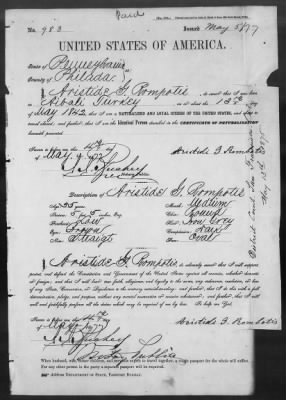 Paid
No. 983
Issued May 5/77
UNITED STATES OF AMERICA.
State of Pennsylvania
County of Philada.
I, Aristide G. Rompotis, do swear that I was born
in Aivali Turkey on or about the 15th day
of May 1842, that I am a NATURALIZED AND LOYAL CITIZEN OF THE UNITED STATES, and
to travel abroad, and further, that I am the Identical Person described in the CERTIFICATE OF NATURALIZATION
herewith presented.
Sworn to before me this 4th
day of May 1877
Aristide G. Rombotis
Description of Aristide G. Rompotis
Age, 35 years
Mouth, Medium
Stature, 5 feet inches, Eng.
Chin, Round
Forehead, Low
Hair, Iron Grey
Eyes, Brown
Complexion, Fair
Nose, Straight
Face, Oval
I, Aristide G. Rompotis, do solemnly swear that I will support, protect,
and defend the Constitution and Government of the United States against all enemies, whether domestic or
foreign; and that I will bear true faith, allegiance and loyalty to the same, any ordinance, resolution, or law
of any State, Convention, or Legislature to the contrary notwithstanding; and further, that I do this with a full
determination, pledge, and purpose, without any mental reservation or evasion whatsoever; and further, that I will
well and faithfully perform all the duties which may be required of me by law. So help me God.
Sworn to before me this 4th
day of May 1877
Aristide G. Rombotis
Notary Public
When husband, wife, minor children, and servants expect to travel together, a single passport for the whole will suffice.
For any other person in the party a separate passport will be required.
Address DEPARTMENT OF STATE, PASSPORT BUREAU.
District Court San Francisco
May 13th 1875